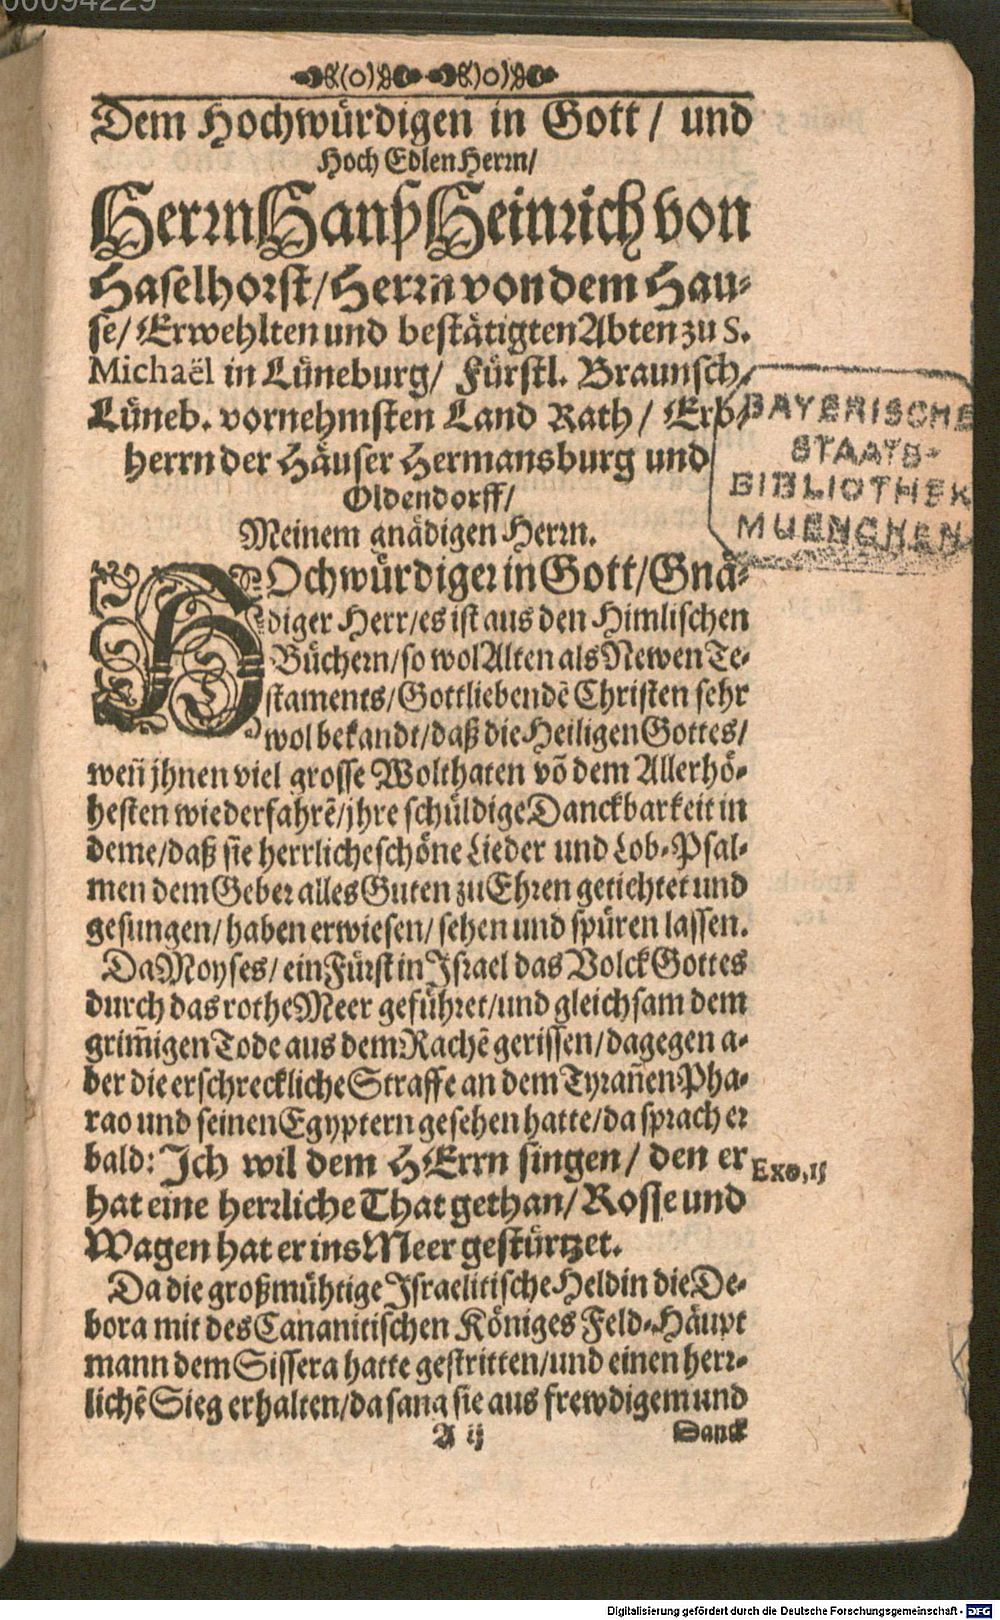 00094229
Dem Hochwürdigen in Gott / und
Hoch Edlen Herrn/
Herrn Hanß Heinrich von
Haselhorst/ Herrn von dem Hau-
se/ Erwehlten und bestätigten Abten zu S.
Michaël in Lüneburg/ Fürstl. Braunsch.
Lüneb. vornehmsten Land Rath / Erb-
herrn der Häuser Hermansburg und
Oldendorff/
Meinem gnädigen Herrn.
BAYERISCHE
STAATS-
BIBLIOTHEK
MUENCHEN
HOchwürdiger in Gott/ Gnä-
diger Herr/ es ist aus den Himlischen
Büchern/ so wol Alten als Newen Te-
staments/ Gottliebendē Christen sehr
wol bekandt/ daß die Heiligen Gottes/
weñ jhnen viel grosse Wolthaten võ dem Allerhö-
hesten wiederfahrē/ jhre schüldige Danckbarkeit in
deme/ daß sie herrliche schöne Lieder und Lob-Psal-
men dem Geber alles Guten zu Ehren getichtet und
gesungen/ haben erwiesen/ sehen und spüren lassen.
Da Moyses/ ein Fürst in Israel das Volck Gottes
durch das rothe Meer geführet/ und gleichsam dem
grim̄igen Tode aus dem Rachē gerissen/ dagegen a-
ber die erschreckliche Straffe an dem Tyrañen Pha-
rao und seinen Egyptern gesehen hatte/ da sprach er
bald: Ich wil dem HErrn singen / den er
Exo, 15
hat eine herrliche That gethan/ Rosse und
Wagen hat er ins Meer gestürtzet.
Da die großmühtige Israelitische Heldin die De-
bora mit des Cananitischen Königes Feld-Häupt
mann dem Sissera hatte gestritten/ und einen herr-
lichē Sieg erhalten/ da sang sie aus frewdigem und
A ij
Danck
Digitalisierung gefördert durch die Deutsche Forschungsgemeinschaft - DFG